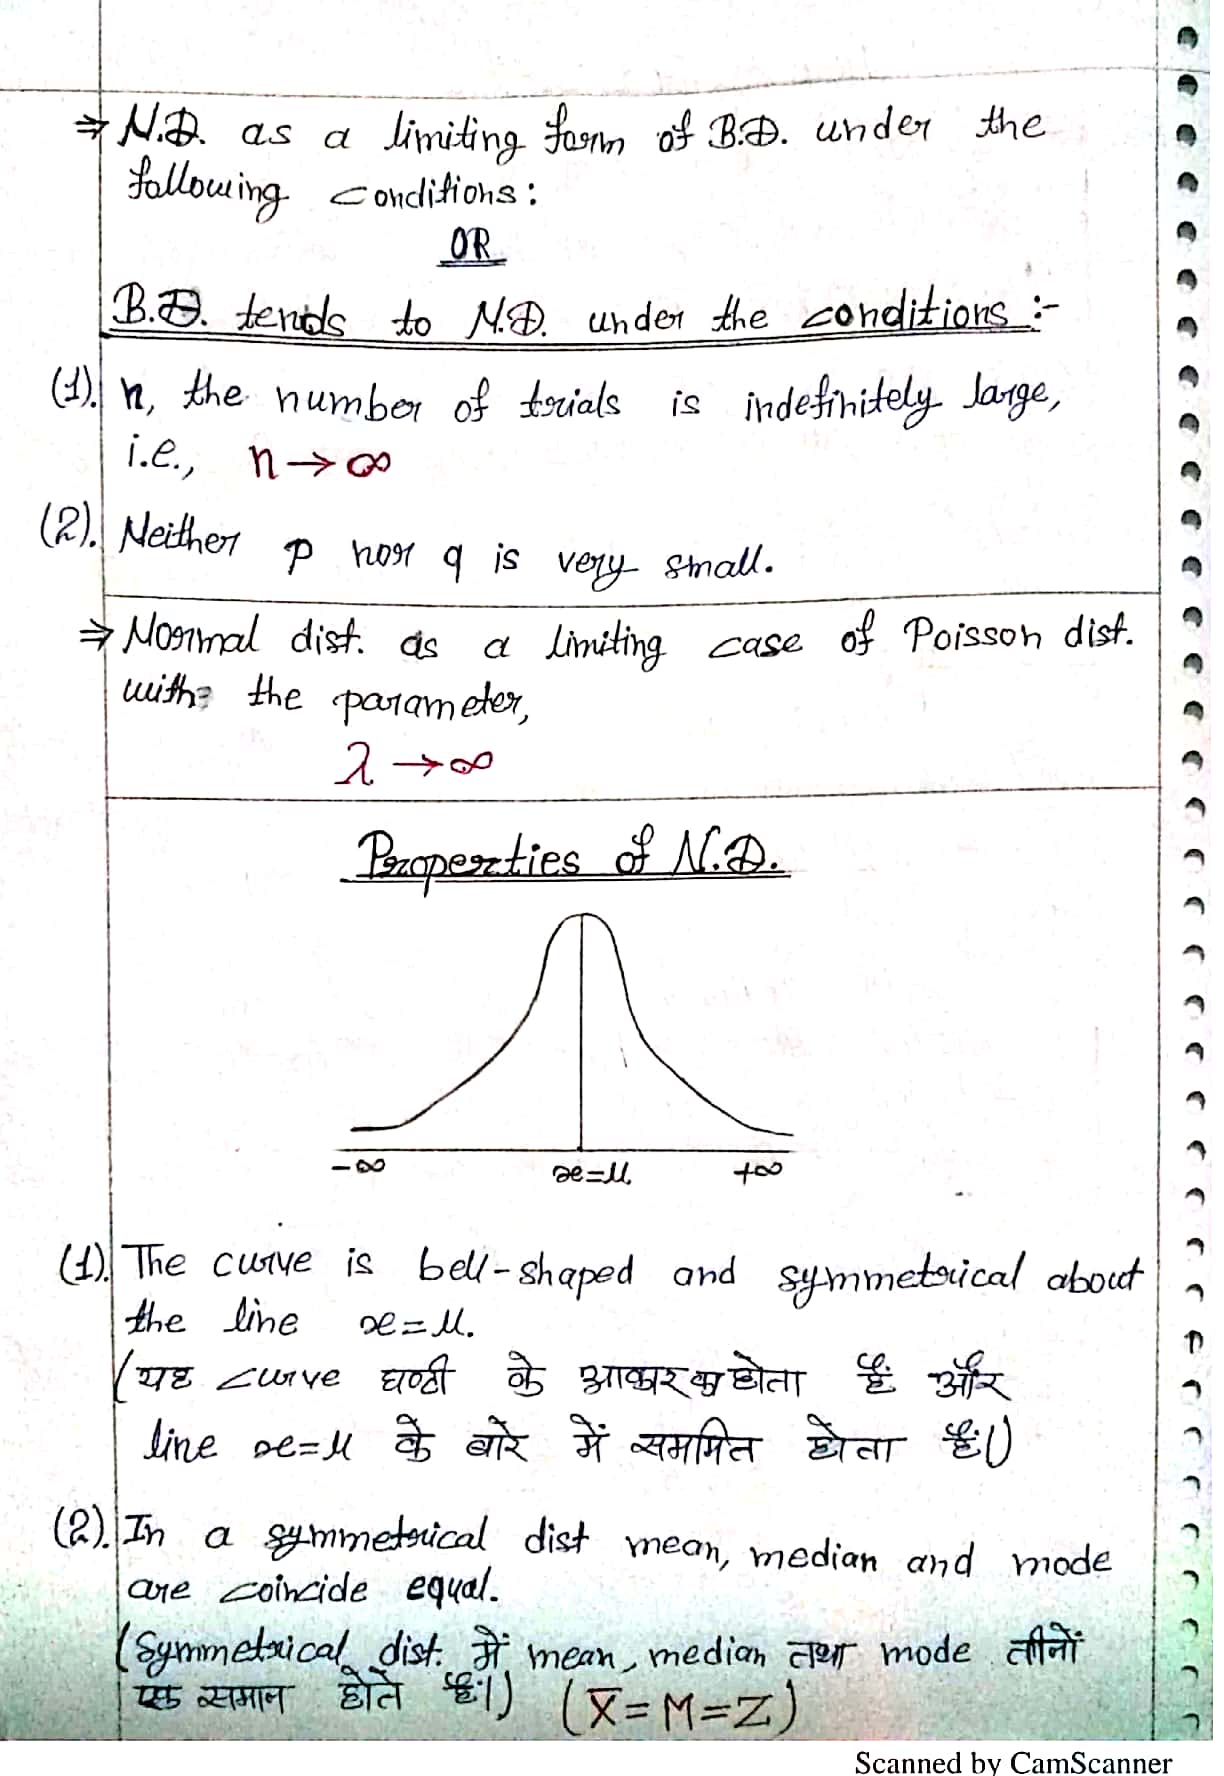 ⇒ N.D. as a limiting form of B.D. under the
following conditions:
OR
B.D. tends to N.D. under the conditions :-
(1). n, the number of trials is indefinitely large,
i.e., n→∞
(2). Neither p nor q is very small.
⇒ Normal dist. as a limiting case of Poisson dist.
with the parameter,
λ→∞
Properties of N.D.
-∞ x=μ +∞
(1). The curve is bell-shaped and symmetrical about
the line x=μ.
(यह curve घण्टी के आकार का होता है और
line x=μ के बारे में सममित होता है।)
(2). In a symmetrical dist mean, median and mode
are coincide equal.
(Symmetrical dist. में mean, median तथा mode तीनों
एक समान होते है।) (X̄=M=Z)
Scanned by CamScanner